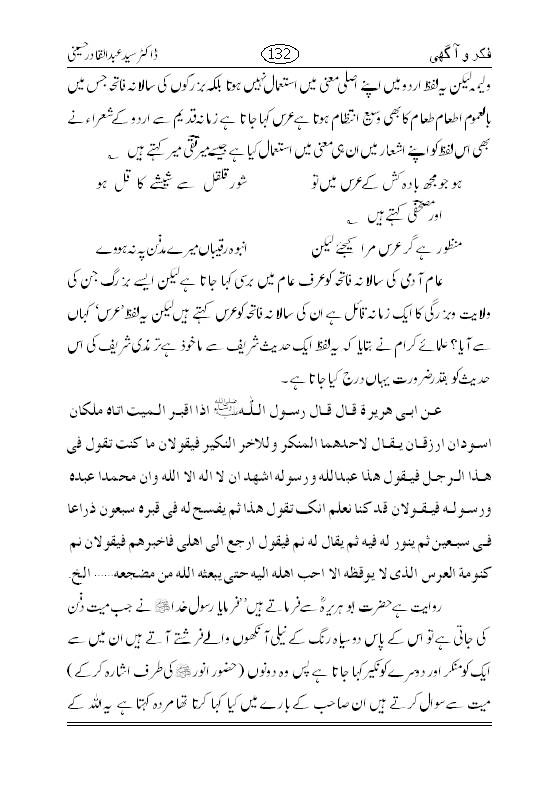 فکر و آگہی 132 ڈاکٹر سید عبدالقادر حسینی
ولیمہ لیکن یہ لفظ اردو میں اپنے اصلی معنی میں استعمال نہیں ہوتا بلکہ بزرگوں کی سالانہ فاتحہ جس میں
بالعموم اطعام طعام کا بھی وسیع انتظام ہوتا ہے عرس کہا جاتا ہے زمانہ قدیم سے اردو کے شعراء نے
بھی اس لفظ کو اپنے اشعار میں ان ہی معنی میں استعمال کیا ہے جیسے میر تقی میر کہتے ہیں ؎
ہو جو مجھ بادہ کش کے عرس میں تو شور قلقل سے شیشے کا قل ہو
اور مصحفی کہتے ہیں ؎
منظور ہے گر عرس مرا کیجئے لیکن انبوہ رقیباں میرے مدفن پہ نہ ہووے
عام آدمی کی سالانہ فاتحہ کو عرف عام میں برسی کہا جاتا ہے لیکن ایسے بزرگ جن کی
ولایت و بزرگی کا ایک زمانہ قائل ہے ان کی سالانہ فاتحہ کو عرس کہتے ہیں لیکن یہ لفظ ’عرس‘ کہاں
سے آیا؟ علمائے کرام نے بتایا کہ یہ لفظ ایک حدیث شریف سے ماخوذ ہے ترمذی شریف کی اس
حدیث کو بقدر ضرورت یہاں درج کیا جاتا ہے۔
عن ابی هریرة قال قال رسول اللّٰه ﷺ اذا اقبر المیت اتاه ملکان
اسودان ارزقان یقال لاحدهما المنکر وللاخر النکیر فیقولان ما کنت تقول فی
هذا الرجل فیقول هذا عبدالله ورسوله اشهد ان لا اله الا الله وان محمدا عبده
ورسوله فیقولان قد کنا نعلم انک تقول هذا ثم یفسح له فی قبره سبعون ذراعا
فی سبعین ثم ینور له فیه ثم یقال له نم فیقول ارجع الی اهلی فاخبرهم فیقولان نم
کنومة العروس الذی لا یوقظه الا احب اهله الیه حتی یبعثه الله من مضجعه...... الخ.
روایت ہے حضرت بو ہریرہؓ سے فرماتے ہیں ’’فرمایا رسول خدا ﷺ نے جب میت دفن
کی جاتی ہے تو اس کے پاس دو سیاہ رنگ کے نیلی آنکھوں والے فرشتے آتے ہیں ان میں سے
ایک کو منکر اور دوسرے کو نکیر کہا جاتا ہے پس وہ دونوں (حضور انور ﷺ کی طرف اشارہ کر کے)
میت سے سوال کرتے ہیں ان صاحب کے بارے میں کیا کہا کرتا تھا مردہ کہتا ہے یہ اللہ کے